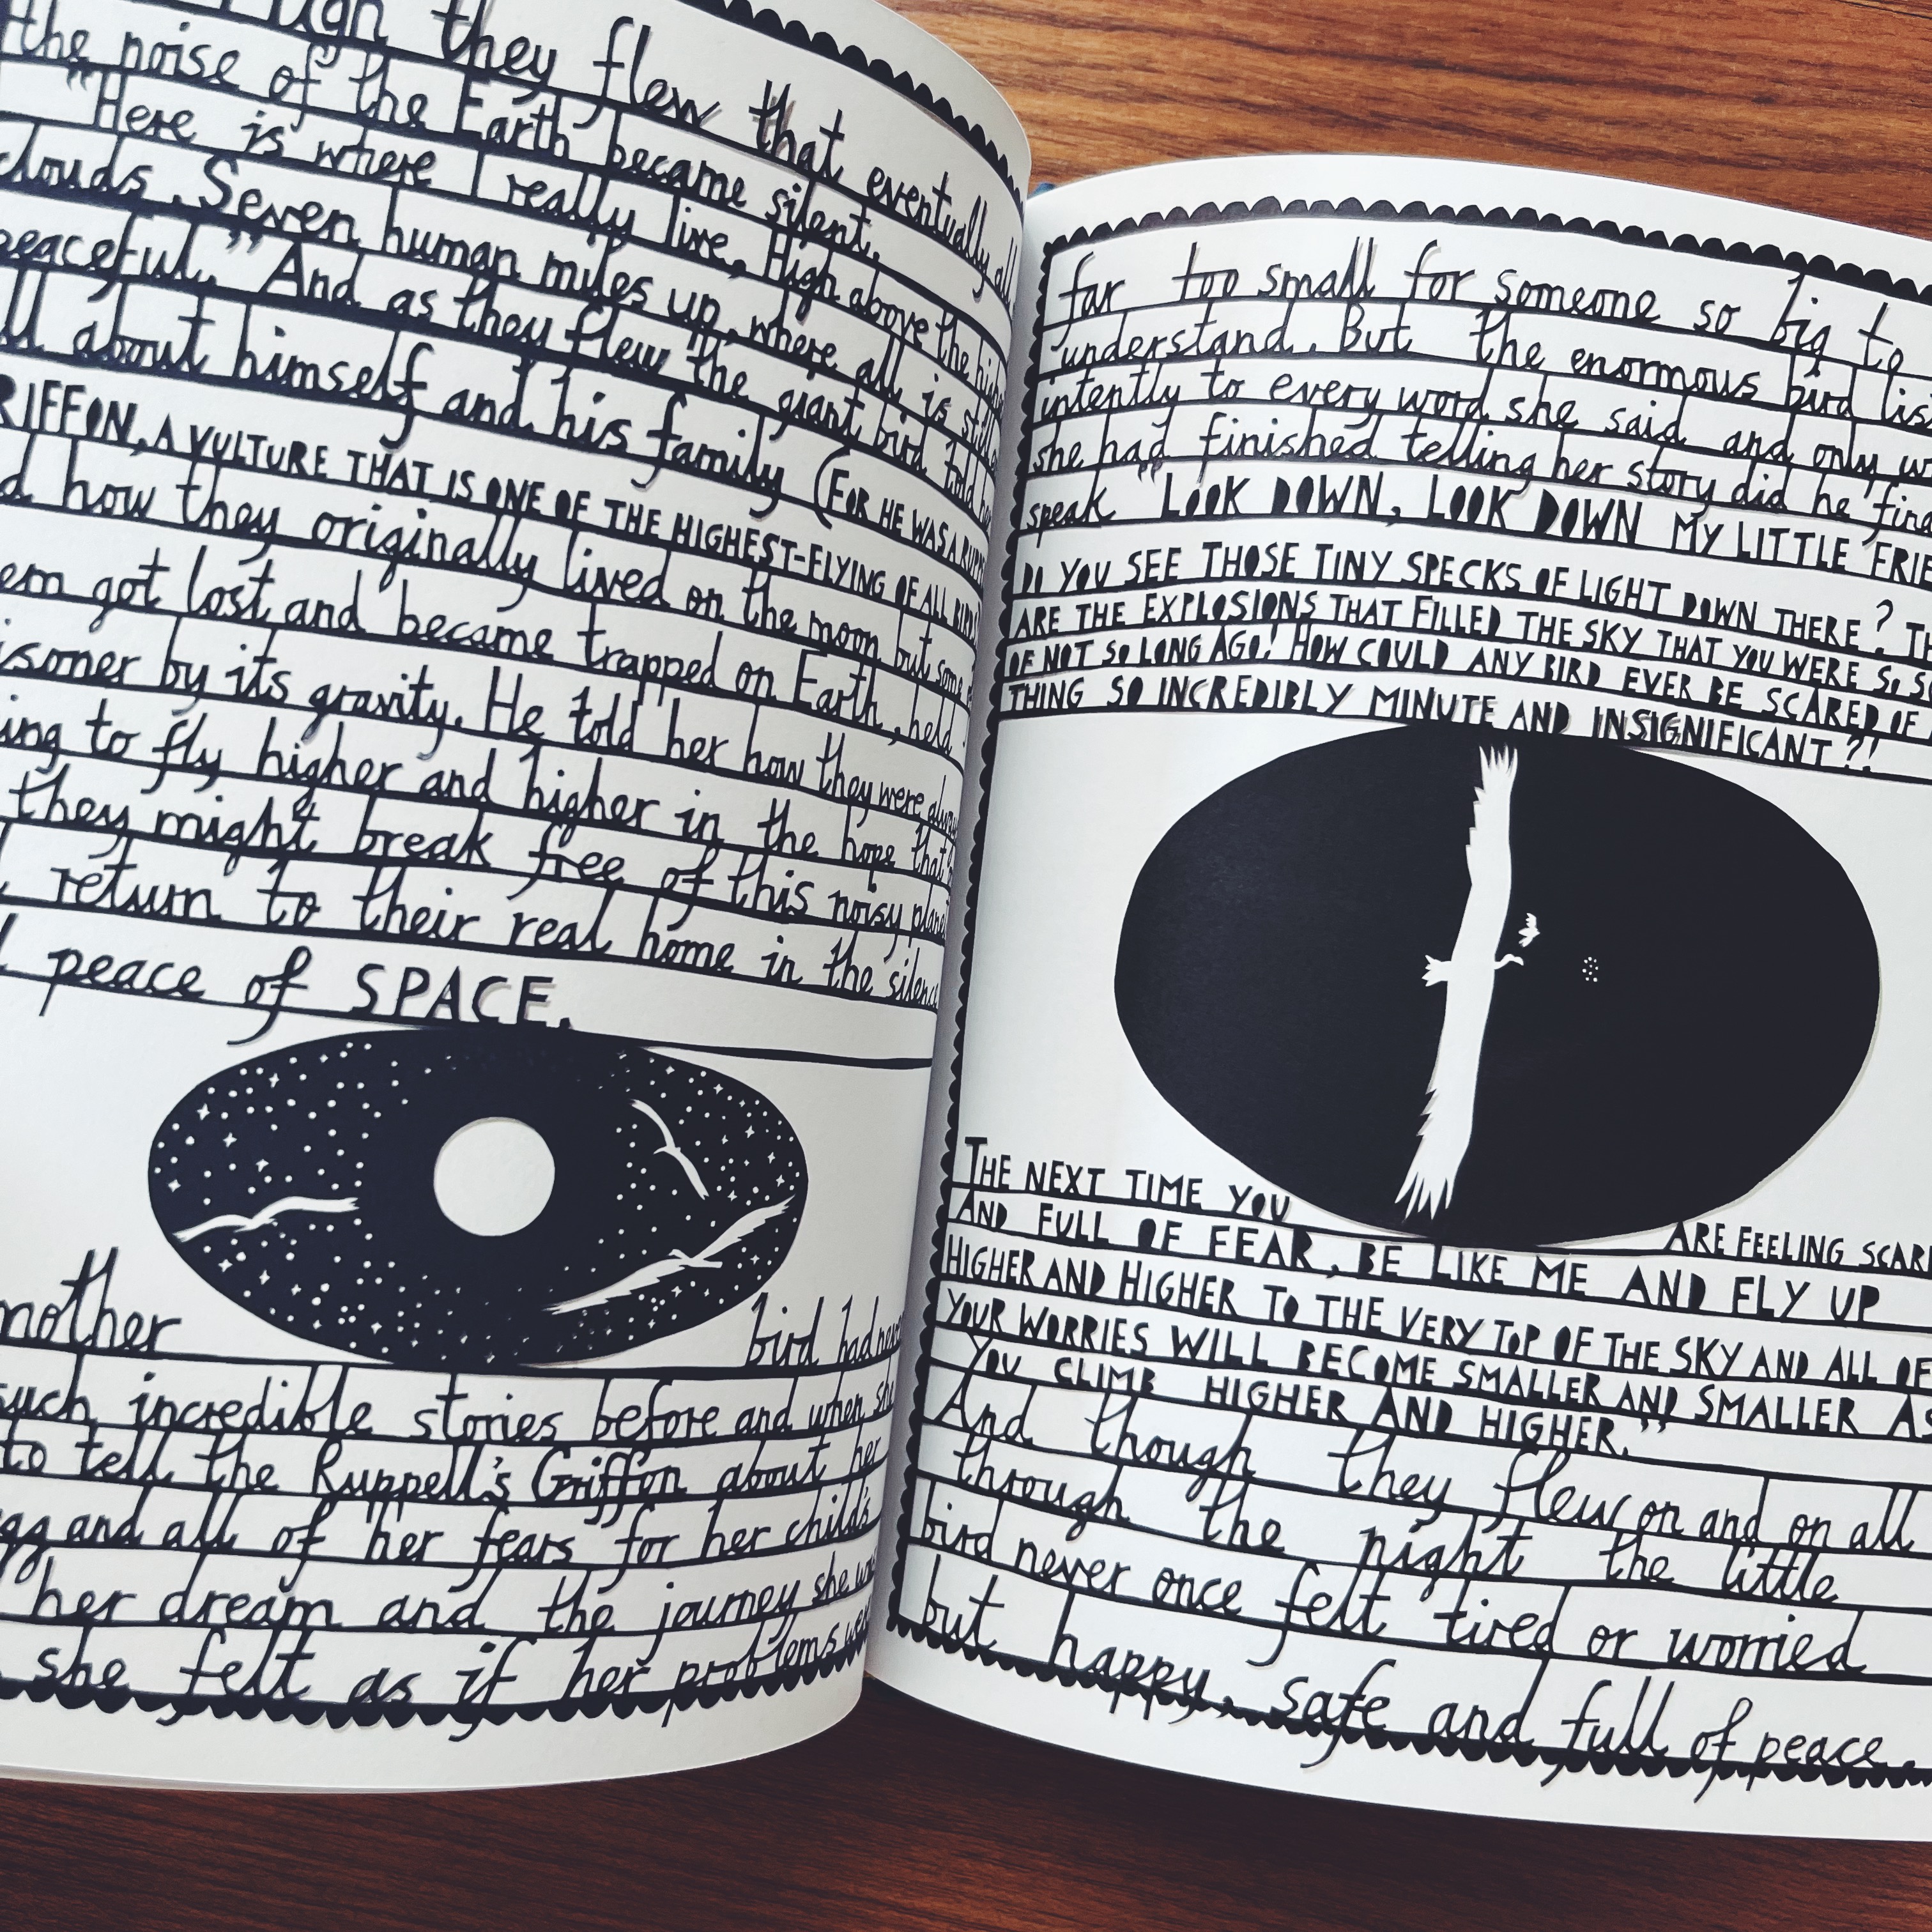 they flew that eventually all
the noise of the Earth became silent.
"Here is where I really live, High above the
clouds. Seven human miles up, where all is still
peaceful." And as they flew the giant bird told her
all about himself and his family (FOR HE WAS A
RIFFON, A VULTURE THAT IS ONE OF THE HIGHEST-FLYING OF ALL BIRDS
how they originally lived on the moon but some
em got lost and became trapped on Earth, held
isoner by its gravity. He told her how they were
ing to fly higher and higher in the hope that
they might break free of this noisy planet
return to their real home in the silence
peace of SPACE.
mother bird had
such incredible stories before and when she
to tell the Ruppell's Griffon about her
and all of her fears for her child's
her dream and the journey she
she felt as if her problems
far too small for someone so big to
understand. But the enormous bird
intently to every word she said and only
she had finished telling her story did he
speak "LOOK DOWN, LOOK DOWN MY LITTLE FRIE
DO YOU SEE THOSE TINY SPECKS OF LIGHT DOWN THERE?
ARE THE EXPLOSIONS THAT FILLED THE SKY THAT YOU WERE SO
OF NOT SO LONG AGO! HOW COULD ANY BIRD EVER BE SCARED OF
THING SO INCREDIBLY MINUTE AND INSIGNIFICANT?!
THE NEXT TIME YOU ARE FEELING SCAR
AND FULL OF FEAR, BE LIKE ME AND FLY UP
HIGHER AND HIGHER TO THE VERY TOP OF THE SKY AND ALL OF
YOUR WORRIES WILL BECOME SMALLER AND SMALLER AS
YOU CLIMB HIGHER AND HIGHER."
And though they flew on and on all
through the night the little
bird never once felt tired or worried
but happy, safe and full of peace.